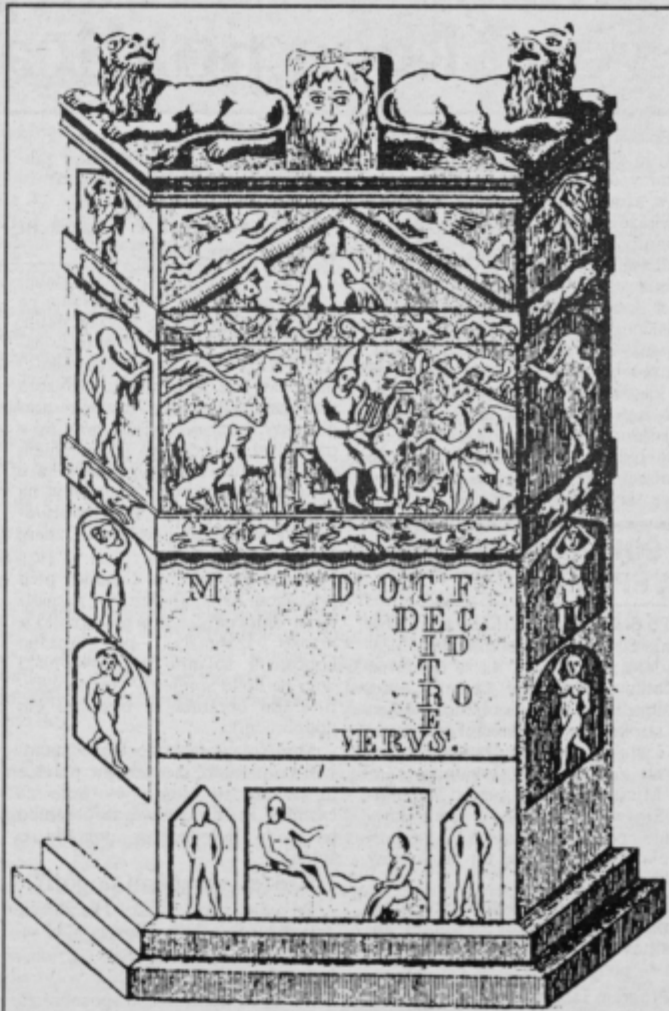 M D O T. F
DEC.
I D
T
R O
E
VERVS.